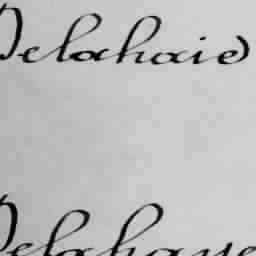 Delahaie
Delahaye